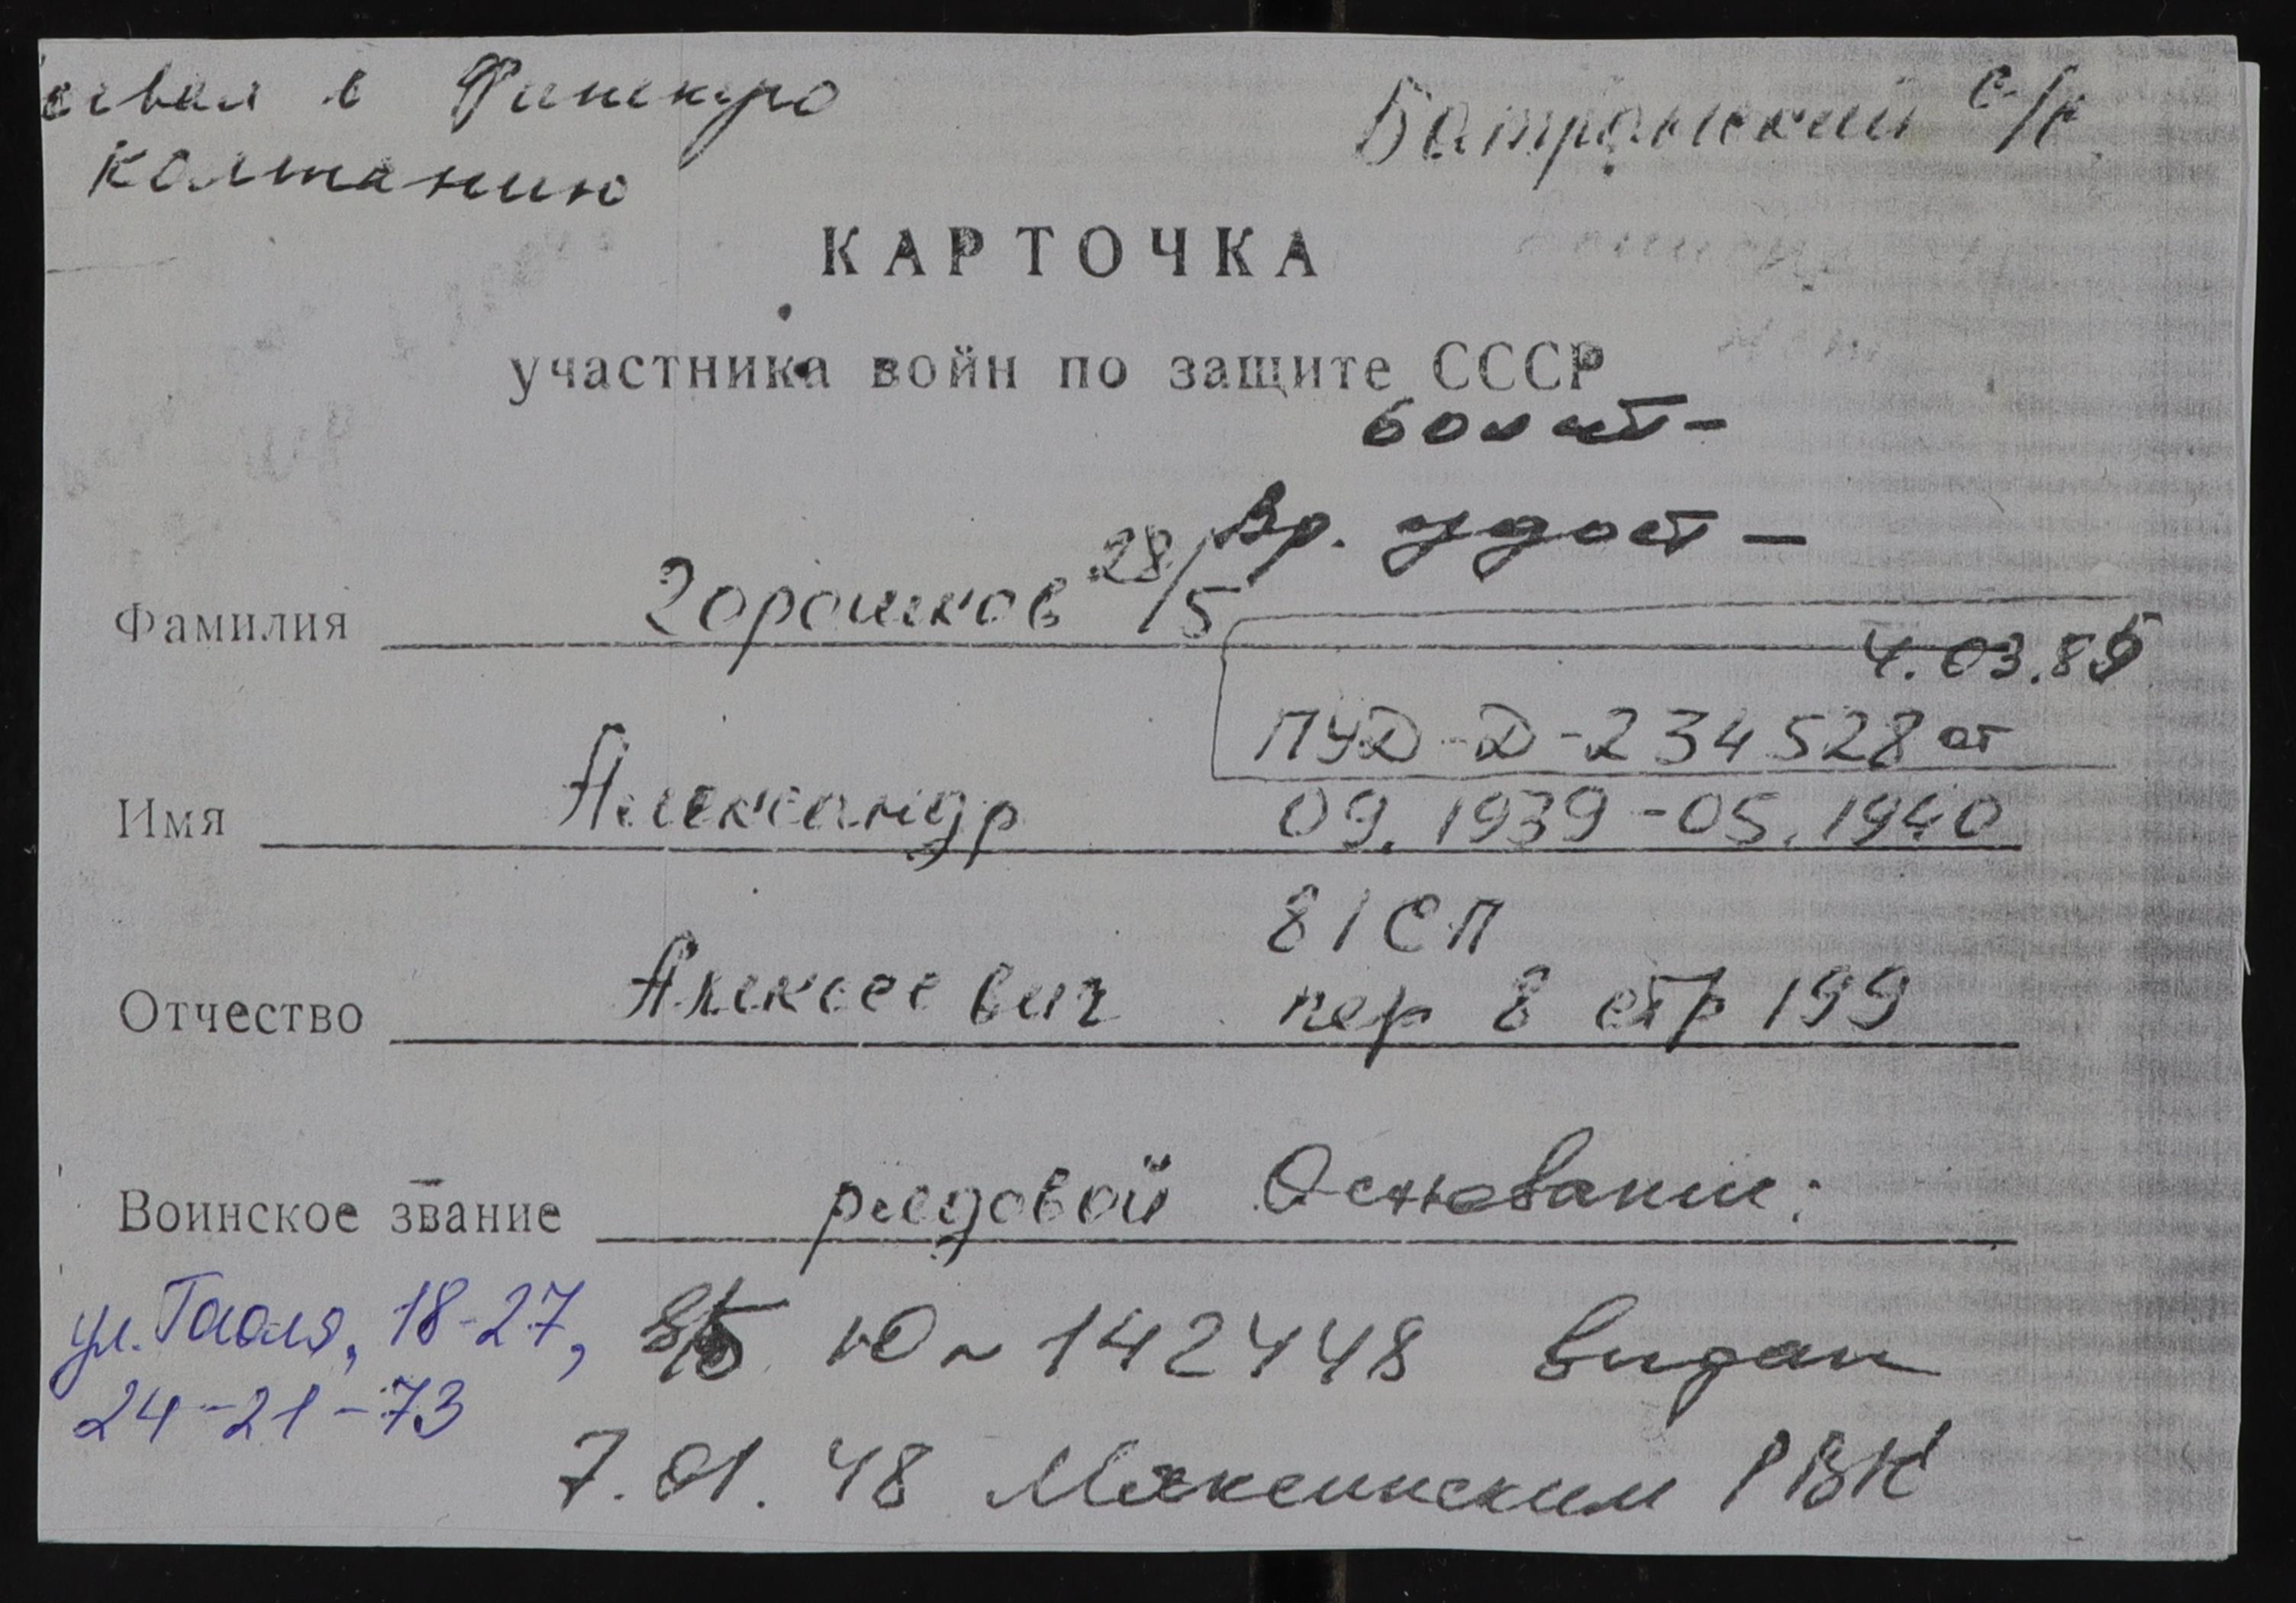 воевал в Финскую
Компанию
Батранский с/с
КАРТОЧКА
участника войн по защите СССР
Вр. удост —
Фамилия Горошков 28/5
4.03.85
ПУД-Д-234528 от
Имя Александр 09.1939-05.1940
81 СП
Отчество Алексеевич пер 8 стр 199
Воинское звание рядовой Основание:
ул. Гоголя, 18-27, в/б Ю ~ 142448 выдан
24-21-73
7.01.48 Мяксинским РВК